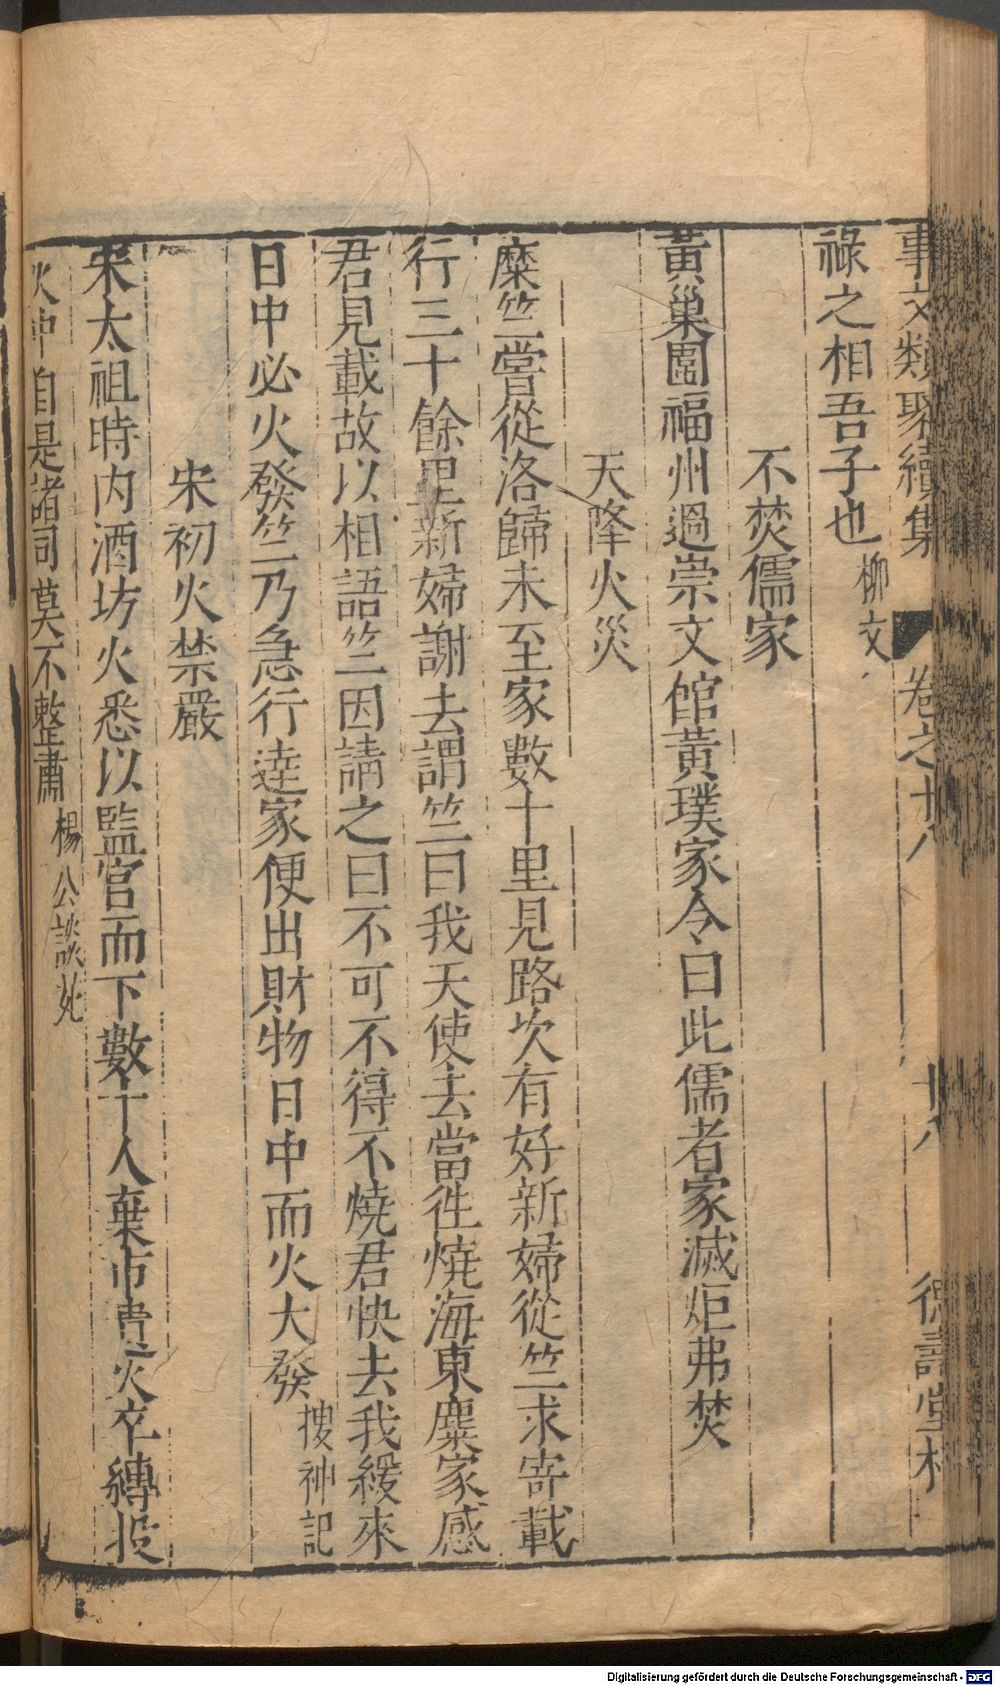 事文類聚續集 卷之十八 廿八 德壽堂梓
祿之相吾子也柳文
不焚儒家
黃巢圍福州過崇文館黃璞家令曰此儒者家滅炬弗焚
天降火災
糜竺嘗從洛歸未至家數十里見路次有好新婦從竺求寄載
行三十餘里新婦謝去謂竺曰我天使去當徃燒海東麋家感
君見載故以相語竺因請之曰不可不得不燒君快去我緩來
日中必火發竺乃急行逹家便出財物日中而火大發搜神記
宋初火禁嚴
宋太祖時內酒坊火悉以監官而下數十人棄市責火卒縛投
火中自是諸司莫不整肅楊公談苑
Digitalisierung gefördert durch die Deutsche Forschungsgemeinschaft - DFG